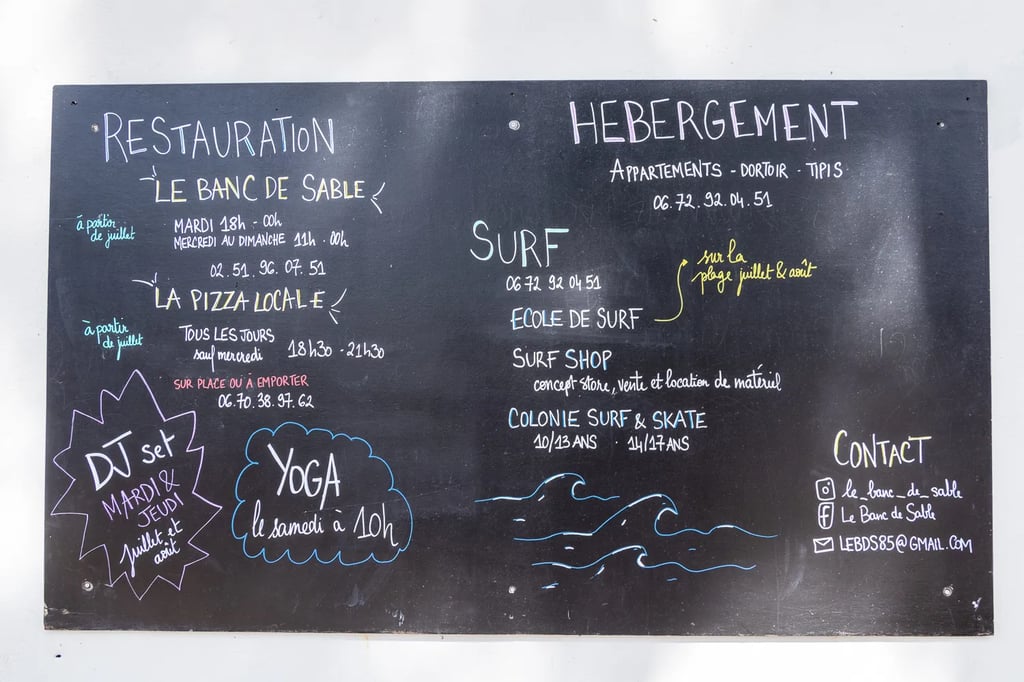 RESTAURATION
LE BANC DE SABLE
à partir
de juillet
MARDI 18h - 00h
MERCREDI AU DIMANCHE 11h - 00h
02.51.96.07.51
LA PIZZA LOCALE
à partir
de juillet
TOUS LES JOURS
sauf mercredi 18h30 - 21h30
SUR PLACE OU À EMPORTER
06.70.38.97.62
DJ set
MARDI &
JEUDI
juillet et
août
YOGA
le samedi à 10h
HEBERGEMENT
APPARTEMENTS - DORTOIR - TIPIS
06.72.92.04.51
SURF
06 72 92 04 51
sur la
plage juillet & août
ECOLE DE SURF
SURF SHOP
concept store, vente et location de matériel
COLONIE SURF & SKATE
10/13 ANS 14/17 ANS
CONTACT
le_banc_de_sable
Le Banc de Sable
LEBDS85@GMAIL.COM